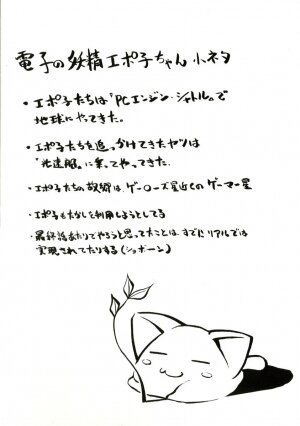 電子の妖精エポ子ちゃん小ネタ
・エポ子たちは「PCエンジン・シャトル」で
地球にやってきた。
・エポ子たちを追っかけてきたヤツは
"光速船"に乗ってやってきた。
・エポ子たちの故郷は、ゲーローズ星近くのゲーマー星
・エポ子もたかしを利用しようとしてる
・最終話あたりでやろうと思ってたことは、すでにリアルでは
実現されてたりする(ショボーン)